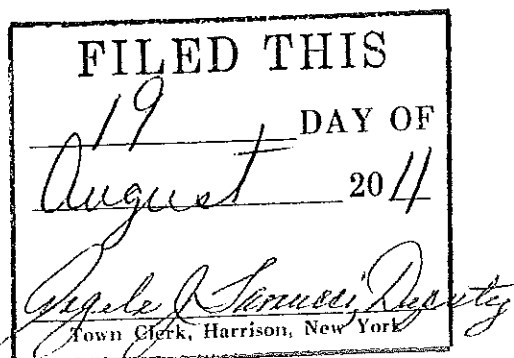 FILED THIS
19 DAY OF
August 2011
Deputy
Town Clerk, Harrison, New York